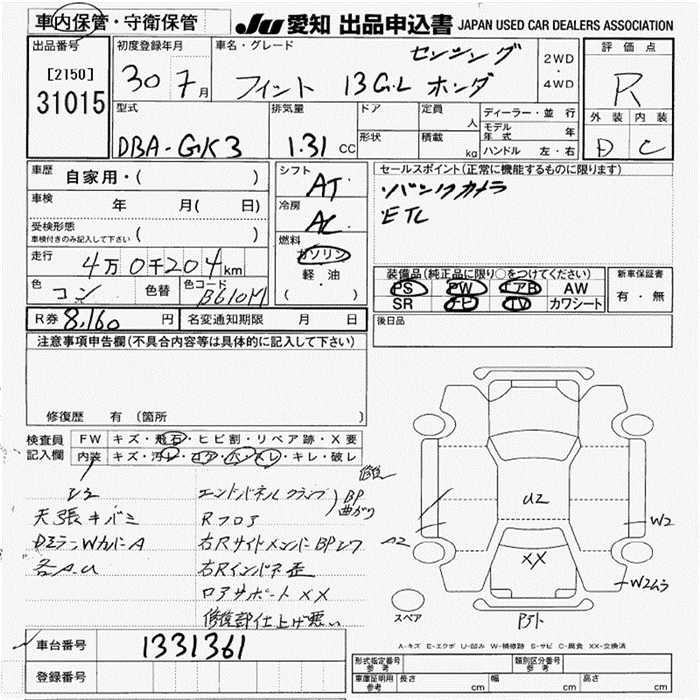 車内保管・守衛保管
JU 愛知 出品申込書 JAPAN USED CAR DEALERS ASSOCIATION
出品番号
[2150]
31015
初度登録年月
30 7月
車名・グレード
フィット 13G・L ホンダ
センシング
2WD
・
4WD
評価点
R
外装 内装
D C
型式
DBA-GK3
排気量
1.31 CC
ドア
形状
定員
人
積載
kg
ディーラー・並行
モデル年式 年
ハンドル 左・右
車歴 自家用・( )
車検 年 月( 日)
受検形態
車検付きのみ記入して下さい ( )
走行 4万0千204km
色 コン 色替 色コード B610M
シフト
AT
冷房
AC
燃料
ガソリン
軽・油
( )
セールスポイント(正常に機能するものに限ります)
・バックカメラ
・ETC
装備品(純正品に限り○をつけてください)
PS PW エアB AW
SR ナビ TV カワシート
新車保証書
有・無
R券 8,160 円 名変通知期限 月 日
後日品
注意事項申告欄(不具合内容等は具体的に記入して下さい)
修復歴 有(箇所 )
検査員記入欄
FW キズ・飛石・ヒビ割・リペア跡・X要
内装 キズ・汚レ・コゲ・穴・スレ・キレ・破レ
天張キバミ
DミラーWカバーA
各A.U
エンドパネルクランプ
Rフロア
BP
曲がり
右RサイドメンバーBP
右Rインパネ歪
ロアサポートXX
修復部仕上げ悪い
U2
A2
W2
W2ムラ
XX
スペア
A-キズ E-エクボ U-凹み W-補修跡 S-サビ C-腐食 XX-交換済
車台番号 1331361
登録番号
型式指定番号 参考
類別区分番号 参考
車庫証明用 参考
長さ cm 幅 cm 高さ cm